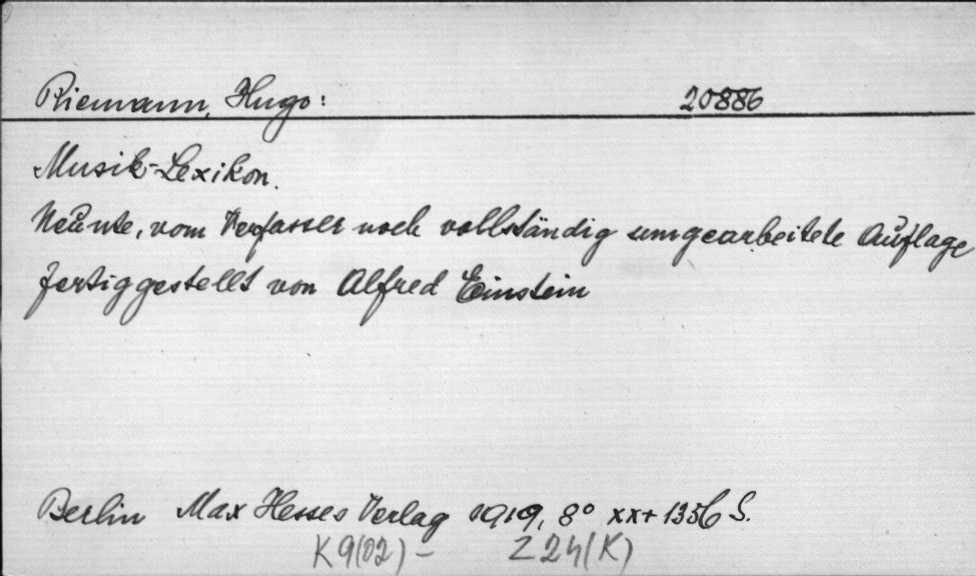 Riemann, Hugo: 20886
Musik-Lexikon.
Neunte, vom Verfasser noch vollständig umgearbeitete Auflage
fertiggestellt von Alfred Einstein
Berlin Max Hesses Verlag 1919, 8° xx+1356 S.
K9(02)- Z24(K)